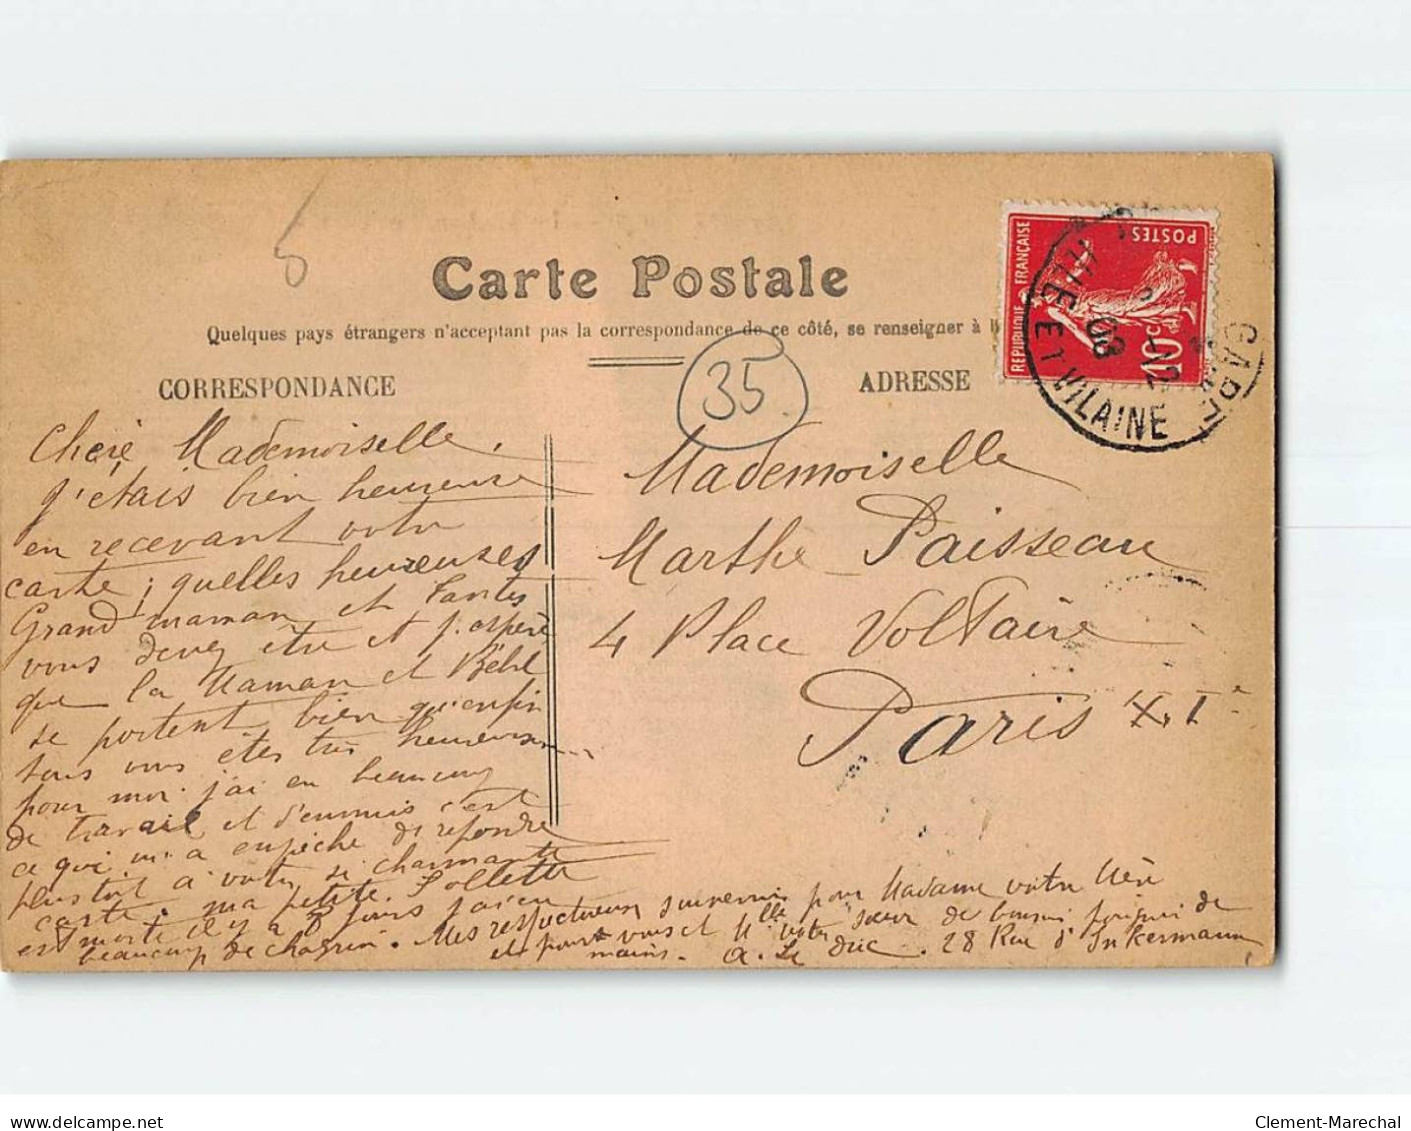 Carte Postale
Quelques pays étrangers n'acceptant pas la correspondance de ce côté, se renseigner à
CORRESPONDANCE
ADRESSE
35
5
REPUBLIQUE FRANÇAISE
POSTES
10 c
GARE
ILLE ET VILAINE
08
Chère Mademoiselle,
j'étais bien heureuse
en recevant votre
carte ; quelles heureuses
Grand maman et Tantes
vous devez être et j'espère
que la Maman et Bébé
se portent bien qu'enfin
tous vous êtes très heureux
pour moi j'ai eu beaucoup
de travail et d'ennuis c'est
ce qui m'a empêché de répondre
plus tôt à votre si charmante
carte. ma petite Follette
est morte il y a 8 jours j'ai eu
beaucoup de chagrin. Mes respectueux souvenirs pour Madame votre Mère
et pour vous et Mlle votre sœur de bonnes poignées de
mains. A. Le Duc. 28 Rue d'Inkermann
Mademoiselle
Marthe Paisseau
4 Place Voltaire
Paris XI e
delcampe.net
Clement-Marechal